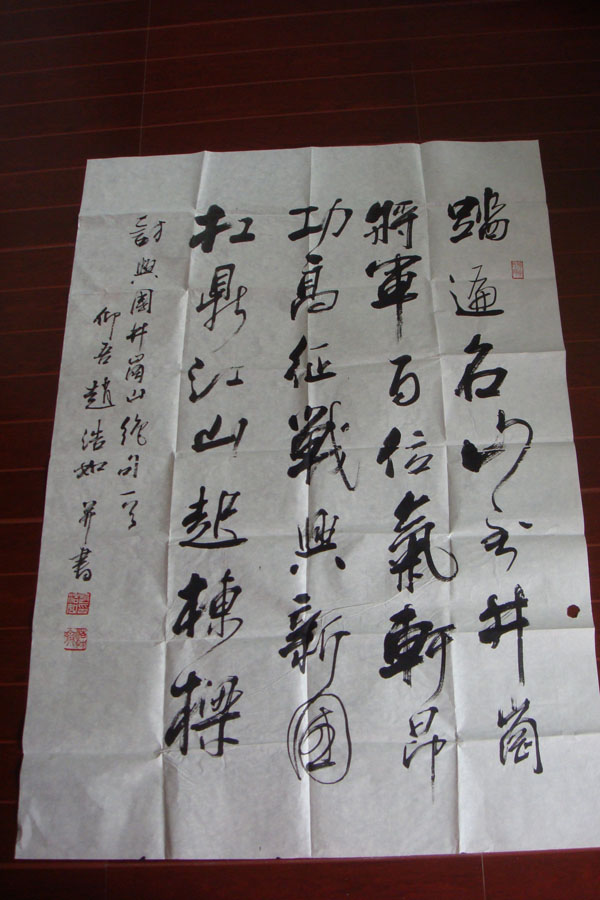 踏遍名山到井崗
將軍百位氣軒昂
功高征戰興新國
杠鼎江山起棟樑
詩興國井崗山絶句一首
仰吾趙浩如并書